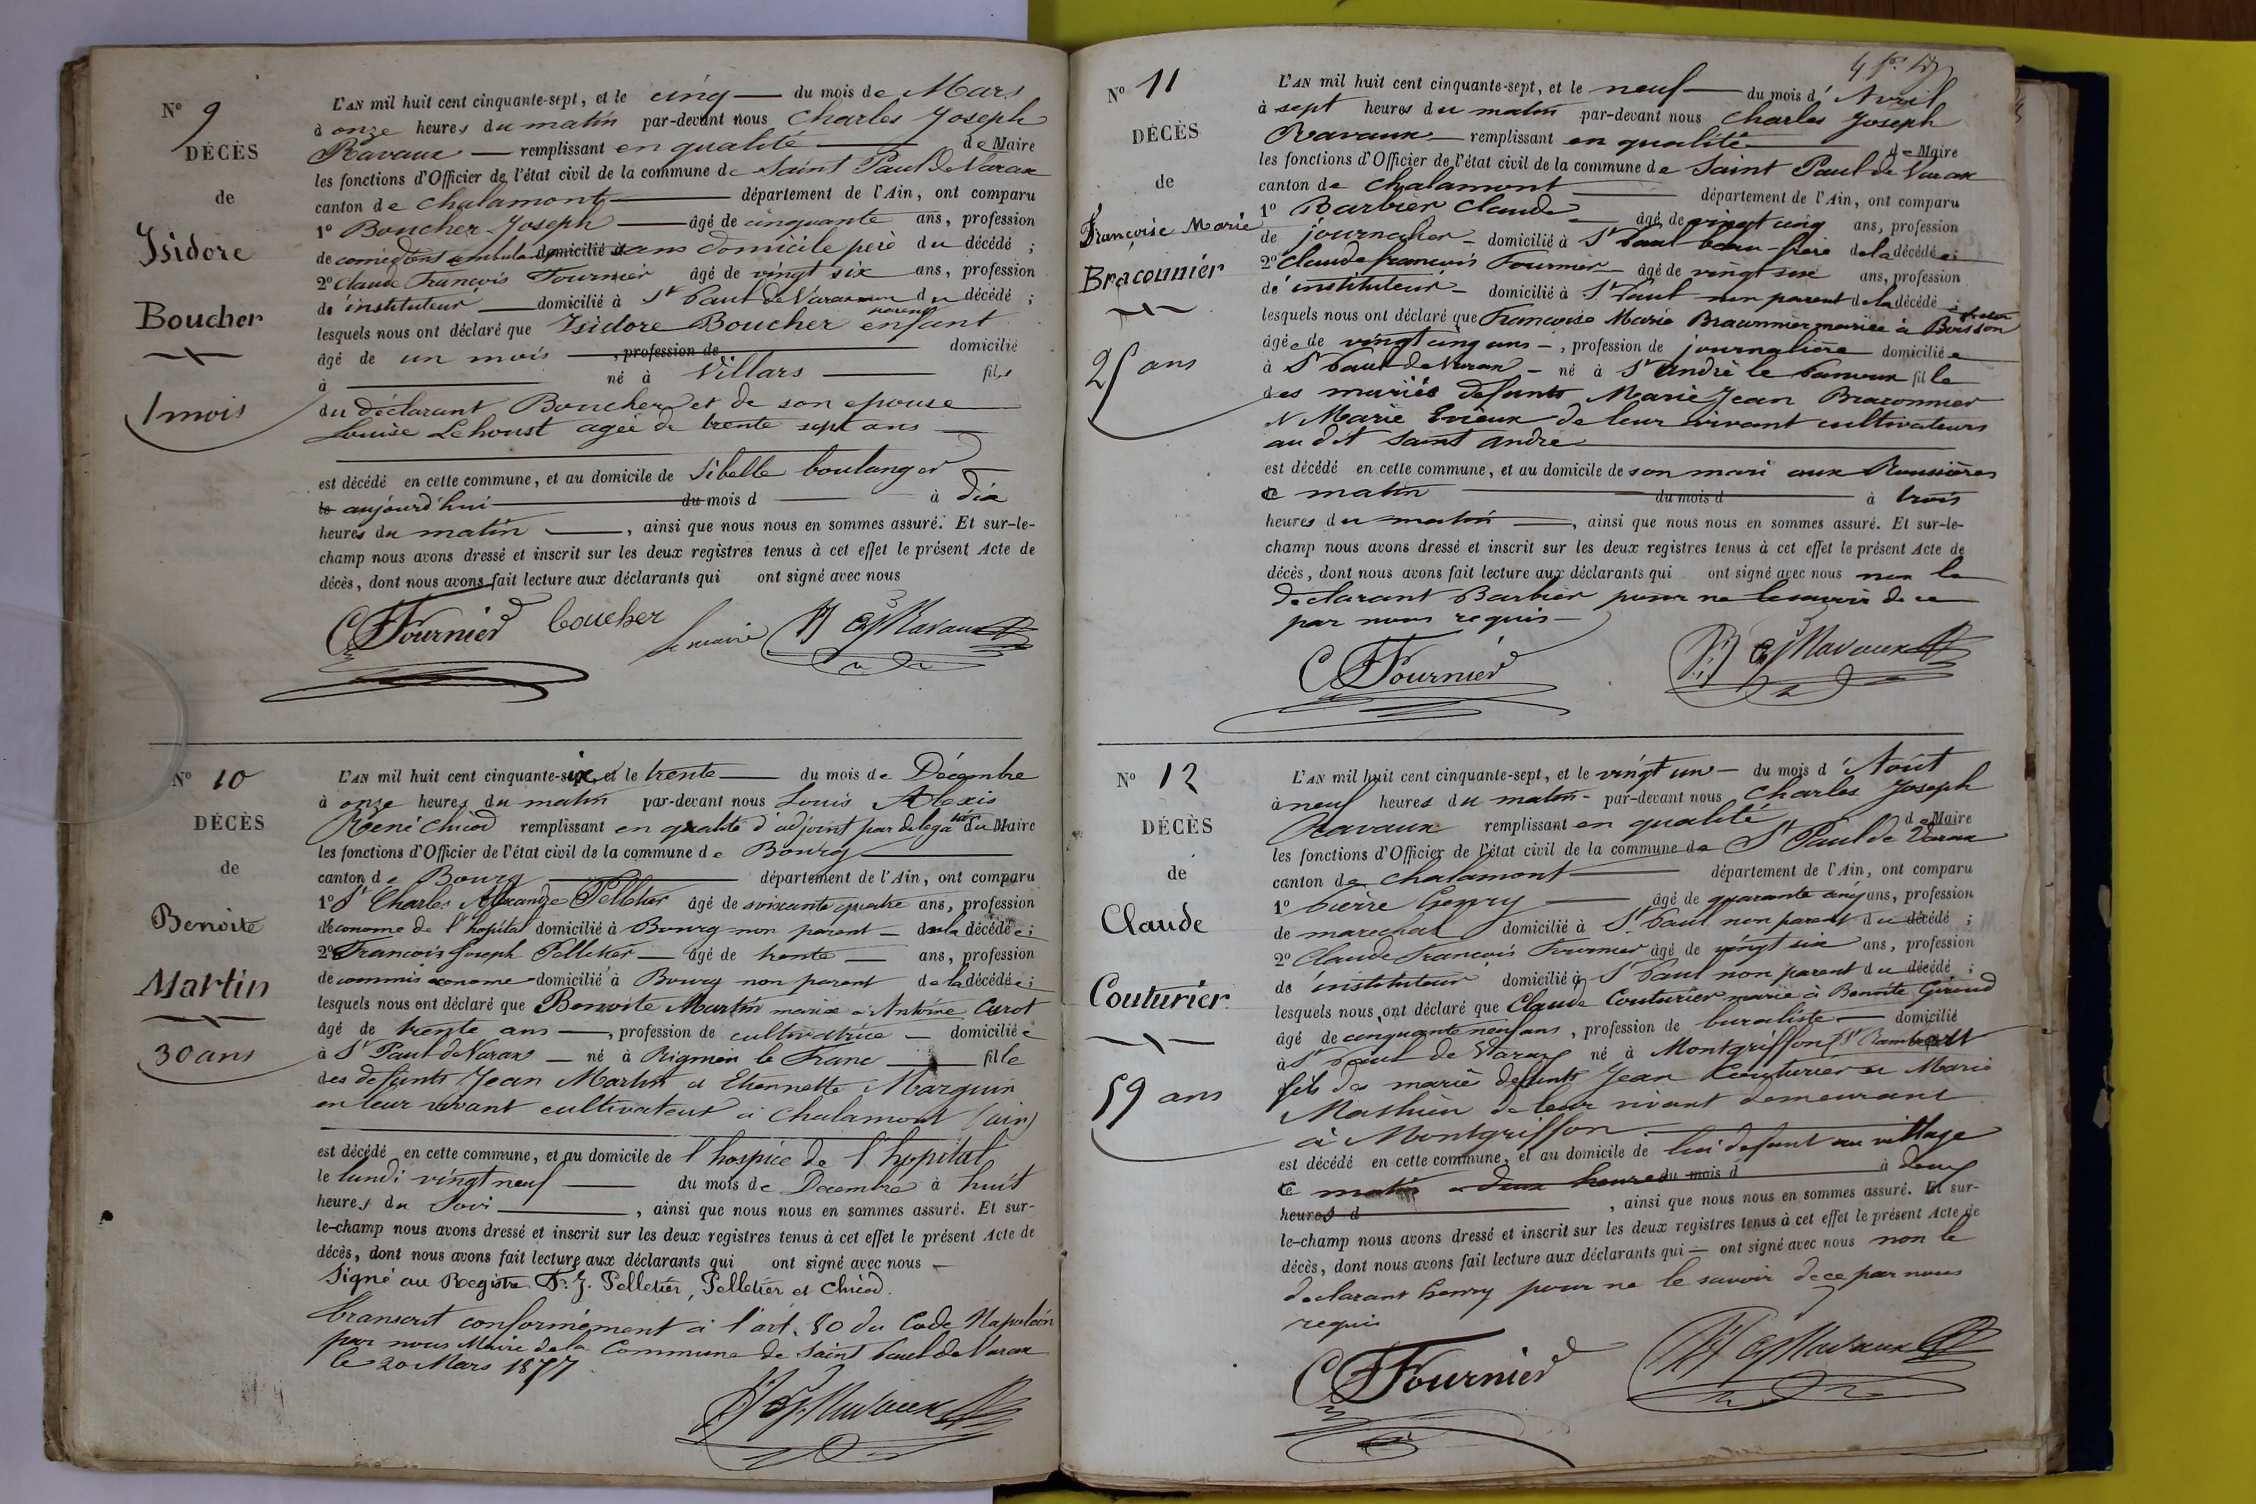 N° 9
DÉCÈS
de
Isidore
Boucher
1 mois
L'AN mil huit cent cinquante-sept, et le cinq du mois de Mars
à onze heures du matin par-devant nous Charles Joseph
Ravaux remplissant en qualité de Maire
les fonctions d'Officier de l'état civil de la commune de Saint Paul de Varax
canton de Chalamont département de l'Ain, ont comparu
1° Boucher Joseph âgé de cinquante ans, profession
de comédiens ambulant domicilié sans domicile père du décédé ;
2° Claude François Fournier âgé de vingt six ans, profession
de instituteur domicilié à St Paul de Varax non parent du décédé ;
lesquels nous ont déclaré que Isidore Boucher enfant
âgé de un mois , profession de domicilié
à né à Villars fils
du déclarant Boucher et de son epouse
Louise Lehoust agée de trente sept ans
est décédé en cette commune, et au domicile de Sibelle boulanger
le aujourd'hui du mois d à dix
heures du matin , ainsi que nous nous en sommes assuré. Et sur-le-
champ nous avons dressé et inscrit sur les deux registres tenus à cet effet le présent Acte de
décès, dont nous avons fait lecture aux déclarants qui ont signé avec nous
C Fournier boucher le maire Ravaux
N° 10
DÉCÈS
de
Benoite
Martin
30 ans
L'AN mil huit cent cinquante-six, et le trente du mois de Décembre
à onze heures du matin par-devant nous Louis Alexis
René Chicod remplissant en qualité d'adjoint par délégation du Maire
les fonctions d'Officier de l'état civil de la commune de Bourg
canton de Bourg département de l'Ain, ont comparu
1° St Charles Alexandre Pelletier âgé de soixante quatre ans, profession
d'économe de l'hopital domicilié à Bourg non parent de la décédée ;
2° François Joseph Pelletier âgé de trente ans, profession
de commis econome domicilié à Bourg non parent de la décédée ;
lesquels nous ont déclaré que Benoite Martin mariée à Antoine Curot
âgé de trente ans , profession de cultivatrice domiciliée
à St Paul de Varax né à Rigneu le Franc fille
des defunts Jean Martin et Etiennette Marguin
en leur vivant cultivateur à Chalamont (ain)
est décédé en cette commune, et au domicile de l'hospice de l'hopital
le lundi vingt neuf du mois de Decembre à huit
heures du Soir , ainsi que nous nous en sommes assuré. Et sur-
le-champ nous avons dressé et inscrit sur les deux registres tenus à cet effet le présent Acte de
décès, dont nous avons fait lecture aux déclarants qui ont signé avec nous
Signé au Registre F. J. Pelletier, Pelletier et Chicod.
transcrit conformément à l'art. 80 du Code Napoléon
par nous Maire de la Commune de Saint Paul de Varax
le 20 Mars 1857
Ravaux
N° 11
DÉCÈS
de
Françoise Marie
Braconnier
25 ans
L'AN mil huit cent cinquante-sept, et le neuf du mois d'Avril
à sept heures du matin par-devant nous Charles Joseph
Ravaux remplissant en qualité de Maire
les fonctions d'Officier de l'état civil de la commune de Saint Paul de Varax
canton de Chalamont département de l'Ain, ont comparu
1° Barbier Claude âgé de vingt cinq ans, profession
de journalier domicilié à St Paul beau-frère de la décédée ;
2° Claude françois Fournier âgé de vingt six ans, profession
de instituteur domicilié à St Paul non parent de la décédé ;
lesquels nous ont déclaré que Francoise Marie Braconnier mariée à Buisson
âgée de vingt cinq ans , profession de journalière domiciliée
à St Paul de Varax né à St andré le panoux fille
des mariés defunts Marie Jean Braconnier
et Marie Evieux de leur vivant cultivateurs
au dit Saint andré
est décédé en cette commune, et au domicile de son mari aux Roussières
ce matin du mois d à trois
heures du matin , ainsi que nous nous en sommes assuré. Et sur-le-
champ nous avons dressé et inscrit sur les deux registres tenus à cet effet le présent Acte de
décès, dont nous avons fait lecture aux déclarants qui ont signé avec nous non le
declarant Barbier pour ne le savoir de ce
par nous requis
C Fournier Ravaux
N° 12
DÉCÈS
de
Claude
Couturier
59 ans
L'AN mil huit cent cinquante-sept, et le vingt un du mois d'Août
à neuf heures du matin par-devant nous Charles Joseph
Ravaux remplissant en qualité de Maire
les fonctions d'Officier de l'état civil de la commune de St Paul de Varax
canton de Chalamont département de l'Ain, ont comparu
1° pierre henry âgé de quarante cinq ans, profession
de marechal domicilié à St Paul non parent du décédé ;
2° Claude François Fournier âgé de vingt six ans, profession
de instituteur domicilié à St Paul non parent du décédé ;
lesquels nous ont déclaré que Claude Couturier marié à Benoite Giroud
âgé de cinquante neuf ans , profession de buraliste domicilié
à St Paul de Varax né à Montgriffon St Rambert
fils des mariés defunts Jean Couturier et Marie
Mathieu de leur vivant demeurant
à Montgriffon
est décédé en cette commune, et au domicile de lui defunt au village
ce matin à deux heures du mois d à deux
heures d , ainsi que nous nous en sommes assuré. Et sur-
le-champ nous avons dressé et inscrit sur les deux registres tenus à cet effet le présent Acte de
décès, dont nous avons fait lecture aux déclarants qui ont signé avec nous non le
declarant henry pour ne le savoir de ce par nous
requis
C Fournier Ravaux